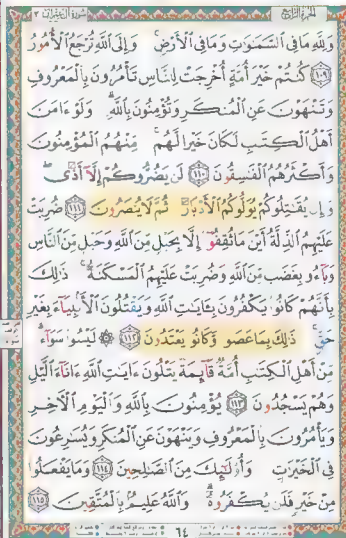 الجزء الرابع سورة آل عمران ٣
وَلِلَّهِ مَا فِي السَّمَاوَاتِ وَمَا فِي الْأَرْضِ وَإِلَى اللَّهِ تُرْجَعُ الْأُمُورُ
١٠٩ كُنتُمْ خَيْرَ أُمَّةٍ أُخْرِجَتْ لِلنَّاسِ تَأْمُرُونَ بِالْمَعْرُوفِ
وَتَنْهَوْنَ عَنِ الْمُنكَرِ وَتُؤْمِنُونَ بِاللَّهِ وَلَوْ ءَامَنَ
أَهْلُ الْكِتَابِ لَكَانَ خَيْرًا لَّهُم مِّنْهُمُ الْمُؤْمِنُونَ
وَأَكْثَرُهُمُ الْفَاسِقُونَ ١١٠ لَن يَضُرُّوكُمْ إِلَّا أَذًى
وَإِن يُقَاتِلُوكُمْ يُوَلُّوكُمُ الْأَدْبَارَ ثُمَّ لَا يُنصَرُونَ ١١١ ضُرِبَتْ
عَلَيْهِمُ الذِّلَّةُ أَيْنَ مَا ثُقِفُوا إِلَّا بِحَبْلٍ مِّنَ اللَّهِ وَحَبْلٍ مِّنَ النَّاسِ
وَبَاءُو بِغَضَبٍ مِّنَ اللَّهِ وَضُرِبَتْ عَلَيْهِمُ الْمَسْكَنَةُ ذَٰلِكَ
بِأَنَّهُمْ كَانُوا يَكْفُرُونَ بِـَٔايَاتِ اللَّهِ وَيَقْتُلُونَ الْأَنبِيَاءَ بِغَيْرِ
حَقٍّ ذَٰلِكَ بِمَا عَصَوا وَّكَانُوا يَعْتَدُونَ ١١٢ ۞ لَيْسُوا سَوَاءً
مِّنْ أَهْلِ الْكِتَابِ أُمَّةٌ قَائِمَةٌ يَتْلُونَ ءَايَاتِ اللَّهِ ءَانَاءَ الَّيْلِ
وَهُمْ يَسْجُدُونَ ١١٣ يُؤْمِنُونَ بِاللَّهِ وَالْيَوْمِ الْآخِرِ
وَيَأْمُرُونَ بِالْمَعْرُوفِ وَيَنْهَوْنَ عَنِ الْمُنكَرِ وَيُسَارِعُونَ
فِي الْخَيْرَاتِ وَأُولَٰئِكَ مِنَ الصَّالِحِينَ ١١٤ وَمَا يَفْعَلُوا
مِنْ خَيْرٍ فَلَن يُكْفَرُوهُ وَاللَّهُ عَلِيمٌ بِالْمُتَّقِينَ ١١٥
٦٤